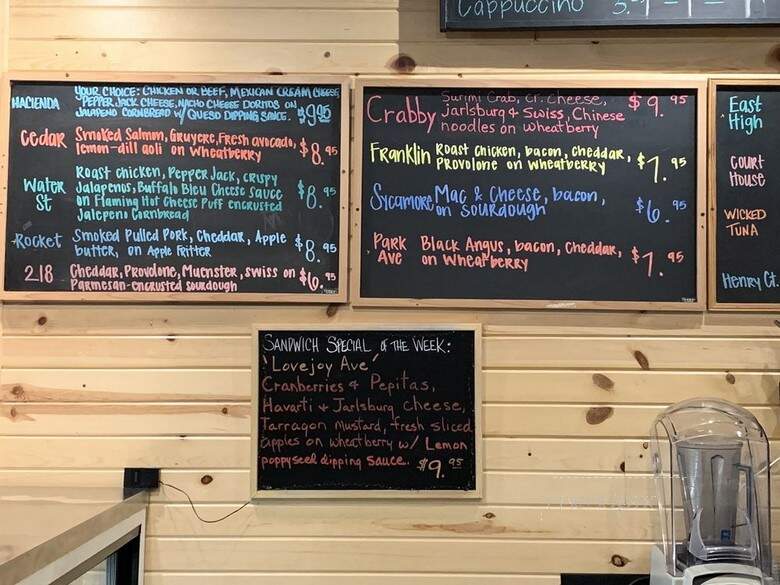 Cappuccino
HACIENDA YOUR CHOICE: CHICKEN OR BEEF, MEXICAN CREAM CHEESE,
PEPPER JACK CHEESE, NACHO CHEESE DORITOS ON
JALAPENO CORNBREAD W/ QUESO DIPPING SAUCE. $9.95
Cedar Smoked Salmon, Gruyere, Fresh avocado,
lemon-dill aoli on wheatberry $8.95
Water St Roast chicken, Pepper Jack, crispy
Jalapenos, Buffalo Bleu Cheese sauce
on Flaming Hot Cheese Puff encrusted
Jalepeno Cornbread $8.95
Rocket Smoked Pulled Pork, Cheddar, Apple
butter, on Apple Fritter $8.95
218 Cheddar, Provolone, Muenster, swiss on
Parmesan-encrusted sourdough $6.95
Crabby Surimi Crab, cr. cheese,
Jarlsburg & Swiss, Chinese
noodles on wheatberry $9.95
Franklin Roast chicken, bacon, cheddar,
Provolone on wheatberry $7.95
Sycamore Mac & Cheese, bacon,
on sourdough $6.95
Park Ave Black Angus, bacon, cheddar,
on wheatberry $7.95
East
High
Court
House
WICKED
TUNA
Henry Ct.
SANDWICH SPECIAL OF THE WEEK:
'Lovejoy Ave'
Cranberries & Pepitas,
Havarti & Jarlsburg cheese,
Tarragon mustard, fresh sliced
apples on wheatberry w/ Lemon
poppyseed dipping sauce. $9.95